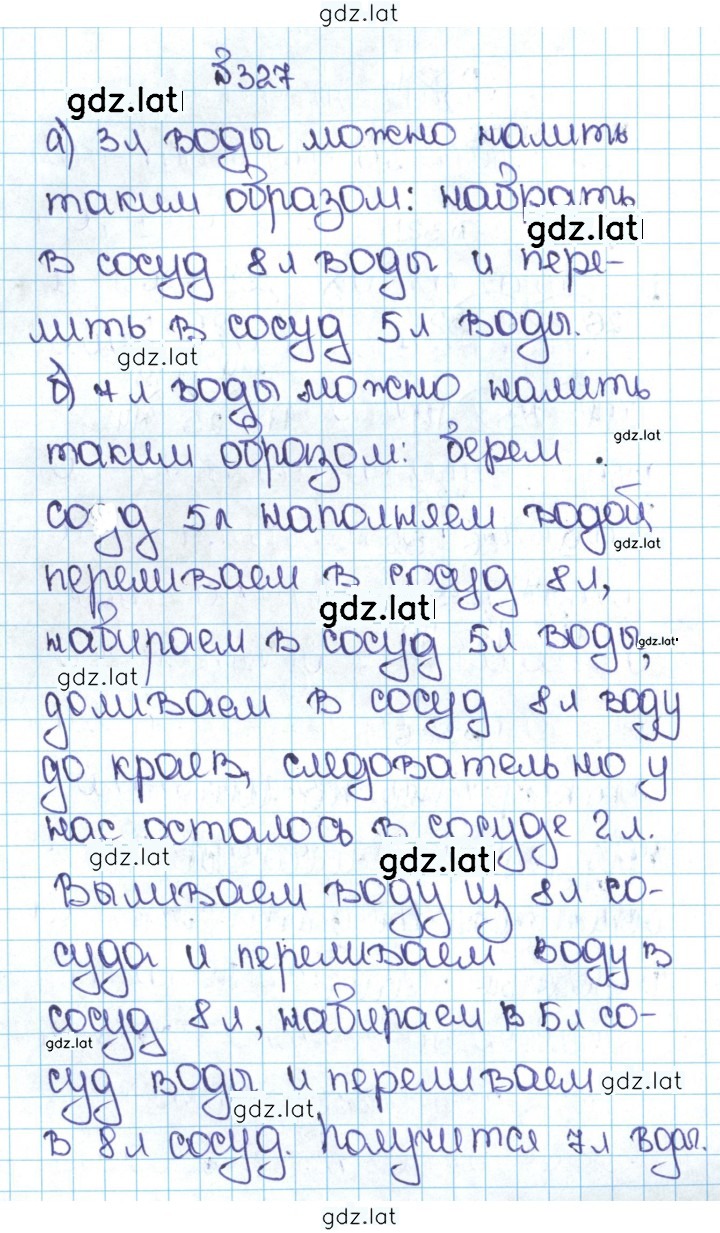 gdz.lat
№327
gdz.lat
а) 3л воды можно налить
таким образом: набрать
gdz.lat
в сосуд 8л воды и пере-
лить в сосуд 5л воды.
gdz.lat
б) 7л воды можно налить
таким образом: берем
gdz.lat
сосуд 5л наполняем водой
gdz.lat
переливаем в сосуд 8л,
gdz.lat
набираем в сосуд 5л воды,
gdz.lat
gdz.lat
доливаем в сосуд 8л воду
до краев, следовательно у
нас осталось в сосуде 2л.
gdz.lat
gdz.lat
Выливаем воду из 8л со-
суда и переливаем воду в
сосуд 8л, набираем в 5л со-
gdz.lat
суд воды и переливаем
gdz.lat
gdz.lat
в 8л сосуд. Получится 7л воды.
gdz.lat